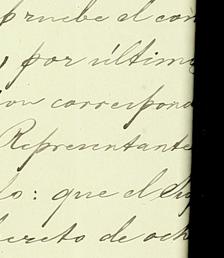 pruebe el con
, por últim
ion correspond
Representante
lo: que el
creto de och